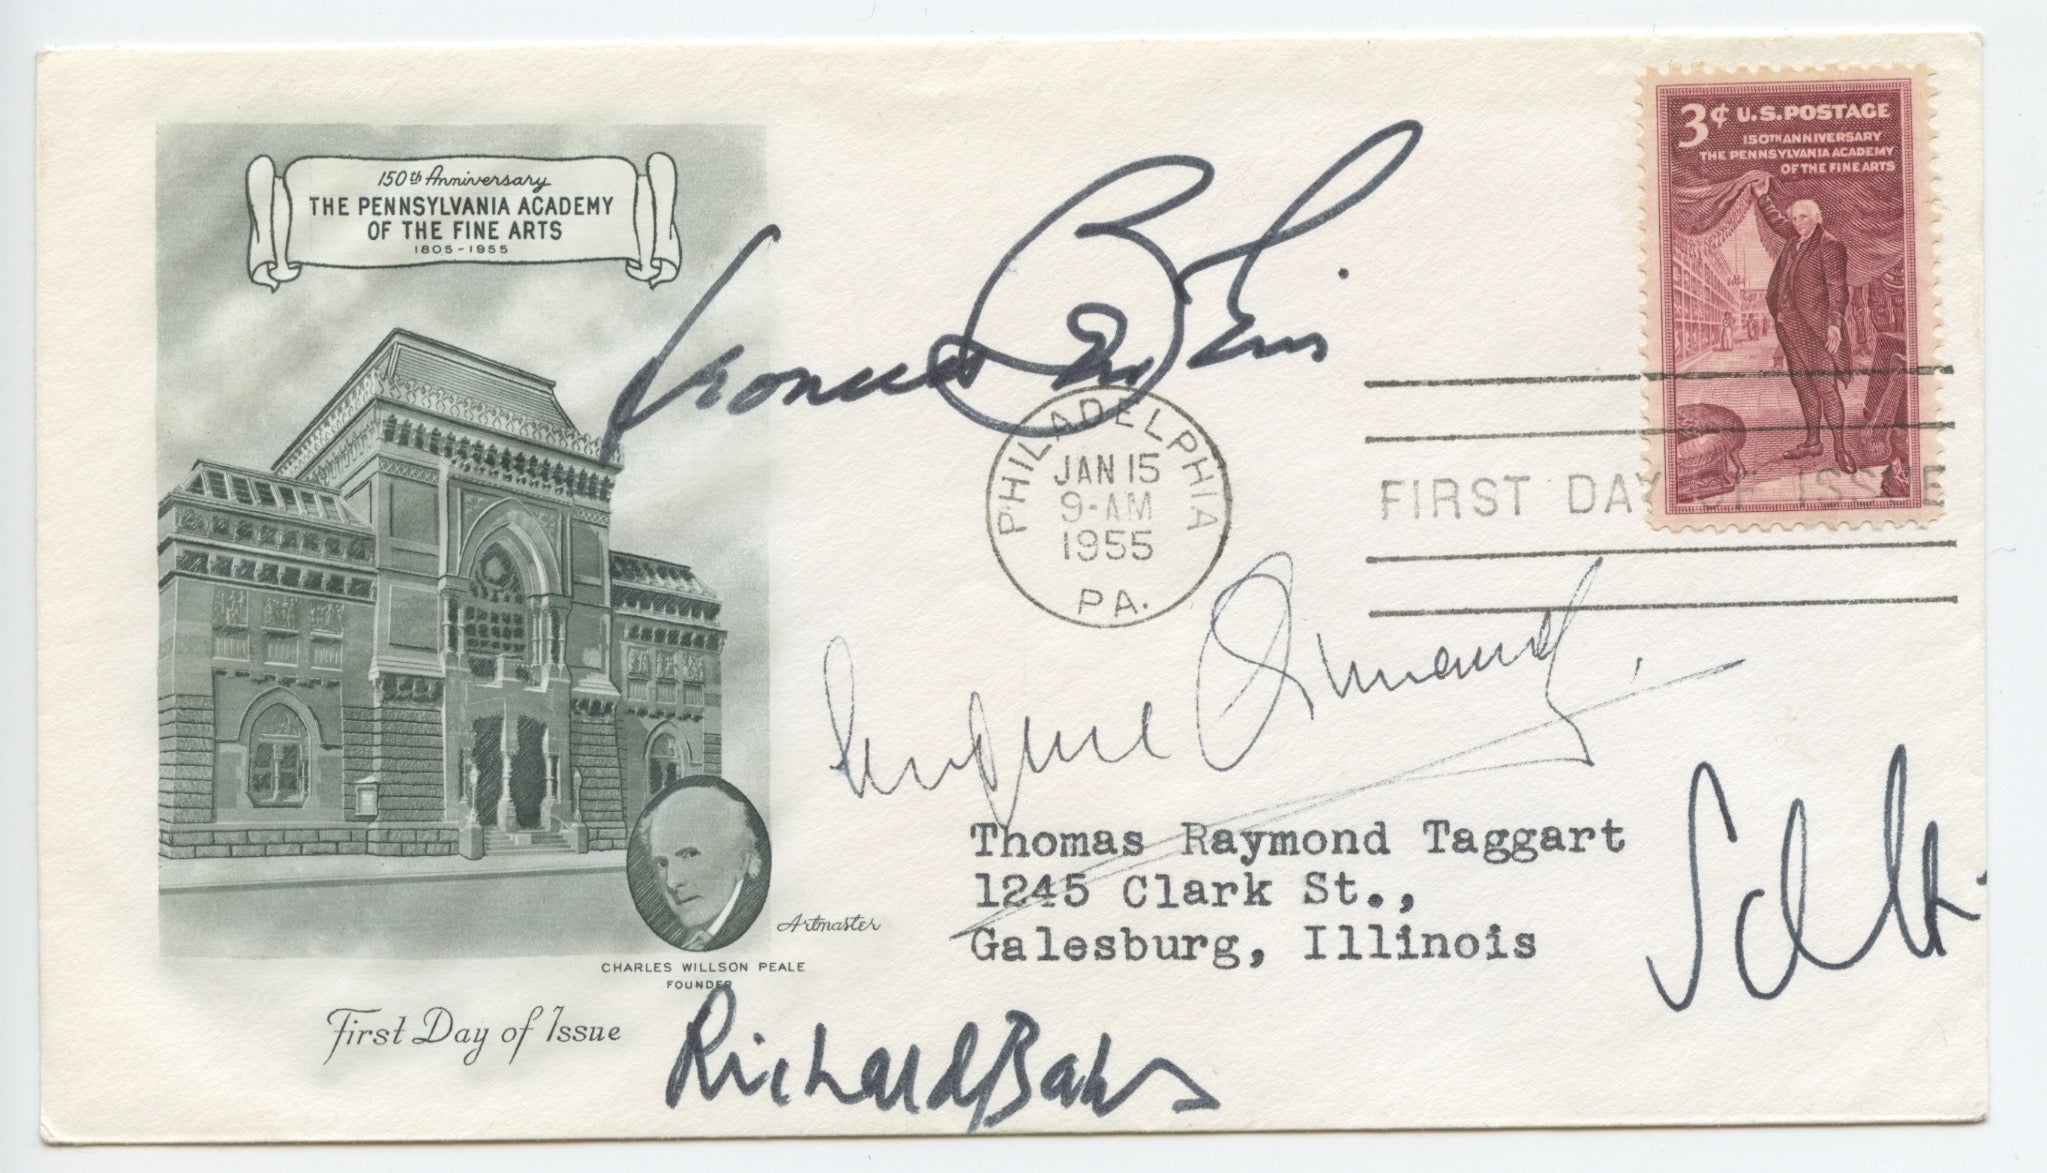 150th Anniversary
THE PENNSYLVANIA ACADEMY
OF THE FINE ARTS
1805-1955
3¢ U.S. POSTAGE
150TH ANNIVERSARY
THE PENNSYLVANIA ACADEMY
OF THE FINE ARTS
PHILADELPHIA
JAN 15
9-AM
1955
PA.
FIRST DAY OF ISSUE
Eugene Ormandy
Thomas Raymond Taggart
1245 Clark St.,
Galesburg, Illinois
Artmaster
CHARLES WILLSON PEALE
FOUNDER
First Day of Issue
Richard